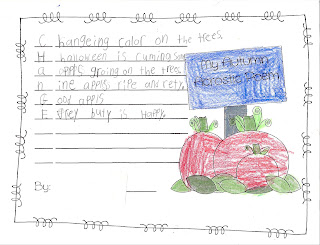 C hangeing calor on the trees
H halloween is cuming soon
a apples groing on the trees
n ine appls ripe and
G ood appls
E very buty is Happy
My Autumn
Acrostic Poem!
By: